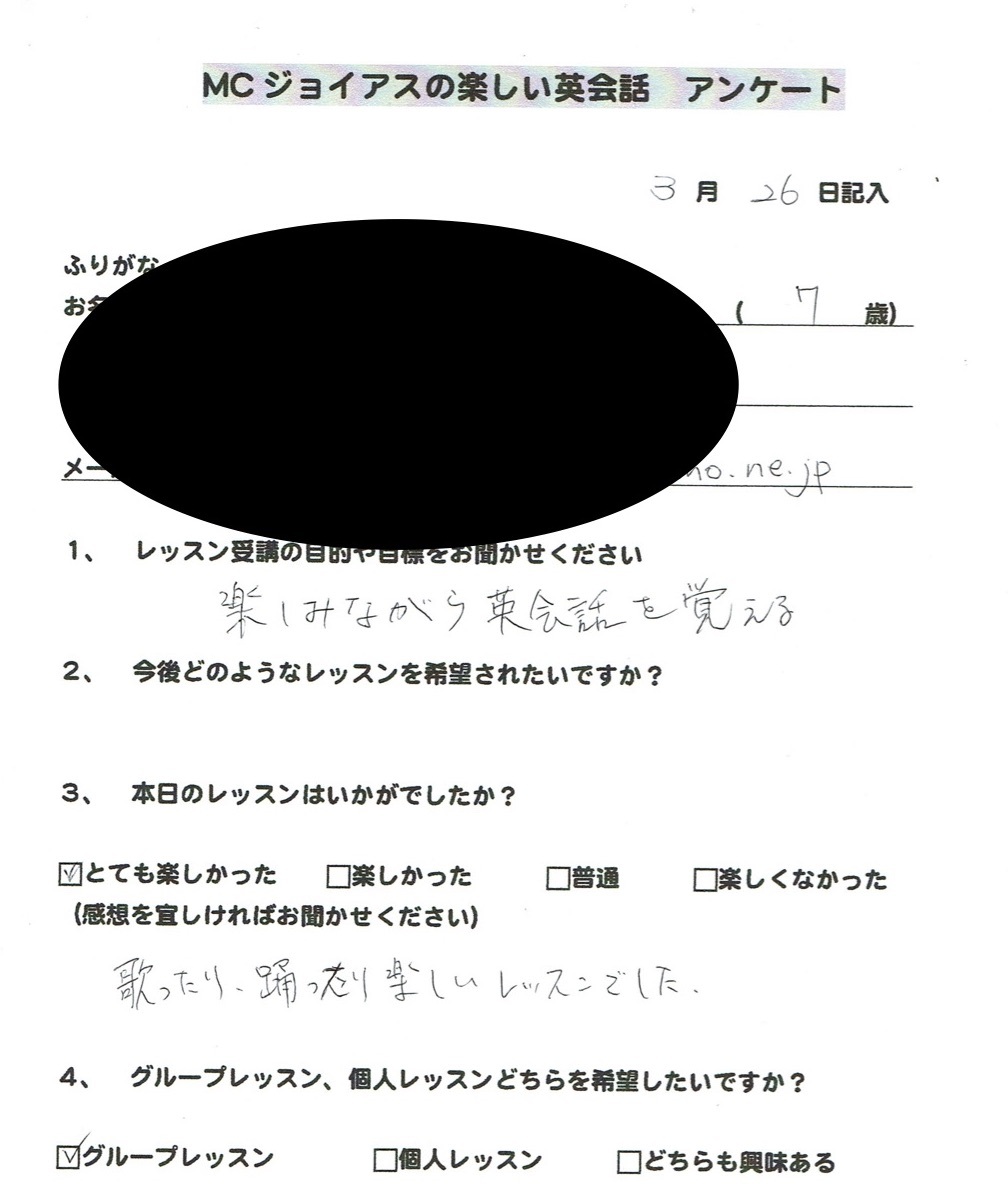 MCジョイアスの楽しい英会話　アンケート
3月 26日記入
ふりがな
お名
( 7 歳)
メー
no.ne.jp
1、 レッスン受講の目的や目標をお聞かせください
楽しみながら英会話を覚える
2、 今後どのようなレッスンを希望されたいですか？
3、 本日のレッスンはいかがでしたか？
☑とても楽しかった □楽しかった □普通 □楽しくなかった
(感想を宜しければお聞かせください)
歌ったり、踊ったり楽しいレッスンでした.
4、 グループレッスン、個人レッスンどちらを希望したいですか？
☑グループレッスン □個人レッスン □どちらも興味ある